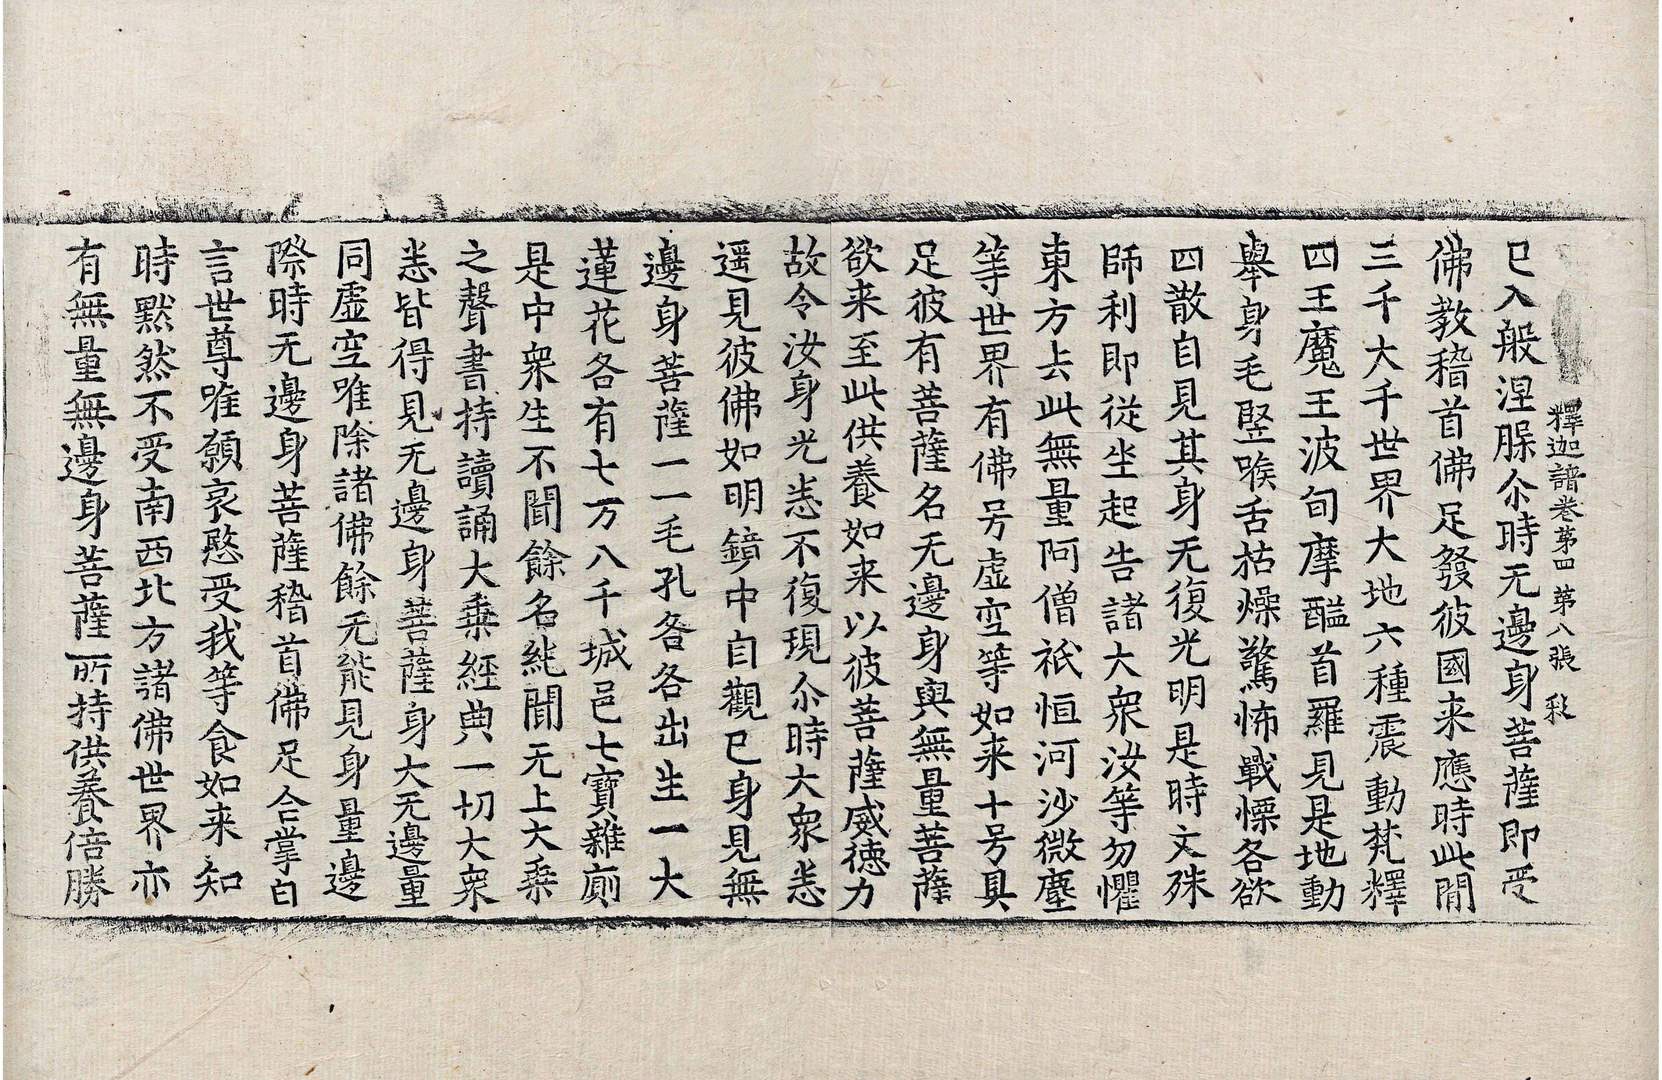 釋迦譜卷苐四　苐八張　㣋
已入般涅𦡀尒時无邊身菩薩即受
佛教稽首佛足發彼國来應時此閒
三千大千世界大地六種震動梵釋
四王魔王波旬摩醯首羅見是地動
舉身毛竪喉舌枯燥驚怖戰慄各欲
四散自見其身无復光明是時文殊
師利即從坐起告諸大衆汝等勿懼
東方去此無量阿僧祇恒河沙微塵
等世界有佛号虚空等如来十号具
足彼有菩薩名无邊身與無量菩薩
欲来至此供養如来以彼菩薩威德力
故令汝身光悉不復現尒時大衆悉
遥見彼佛如明鏡中自觀已身見無
邊身菩薩一一毛孔各各出生一大
蓮花各有七万八千城邑七寶雜廁
是中衆生不聞餘名純聞无上大乗
之聲書持讀誦大乗經典一切大衆
悉皆得見无邊身菩薩身大无邊量
同虚空唯除諸佛餘无能見身量邊
際時无邊身菩薩稽首佛足合掌白
言世尊唯願哀愍受我等食如来知
時黙然不受南西北方諸佛世界亦
有無量無邊身菩薩所持供養倍勝